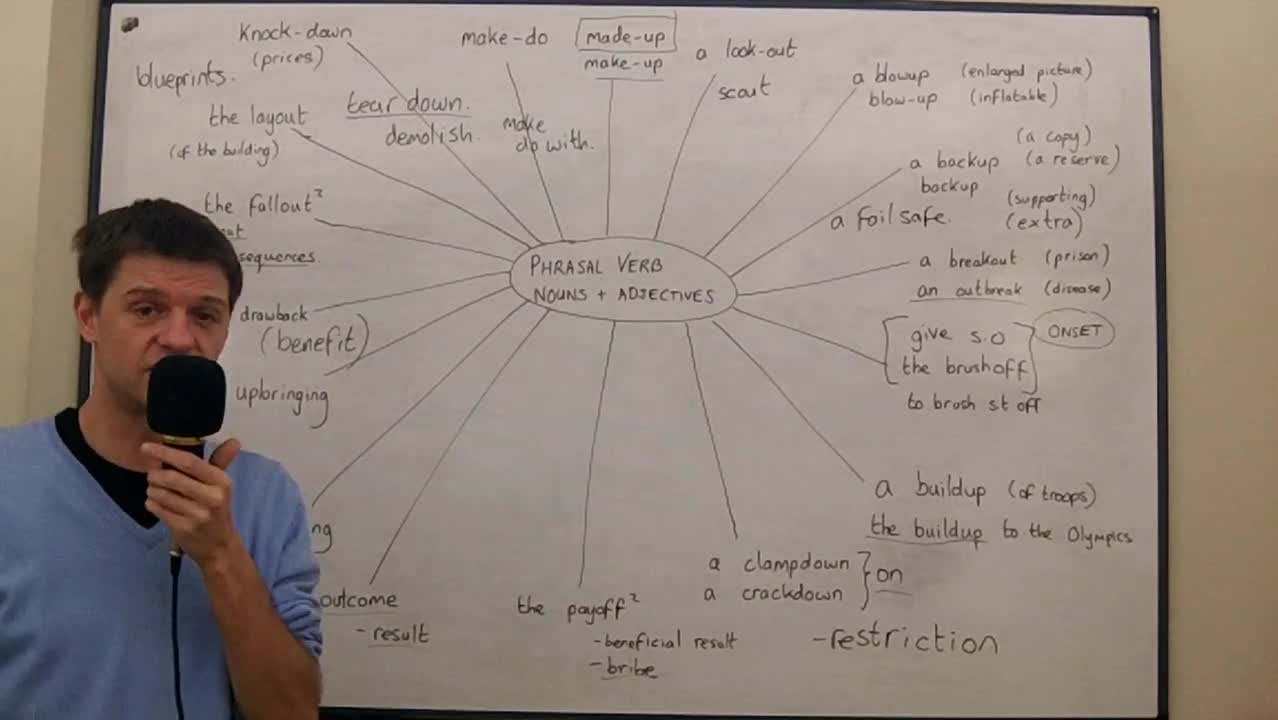 Knock-down
(prices)
blueprints.
the layout
(of the building)
tear down.
demolish.
make-do
make
do with.
made-up
make-up
a look-out
scout
a blowup (enlarged picture)
blow-up (inflatable)
(a copy)
a backup (a reserve)
backup (supporting)
a foilsafe. (extra)
the fallout²
sequences.
PHRASAL VERB
NOUNS + ADJECTIVES
a breakout (prison)
an outbreak (disease)
drawback
(benefit)
give s.o
the brushoff
ONSET
to brush st off
upbringing
a buildup (of troops)
the buildup to the Olympics
ng
a clampdown
a crackdown
on
-restriction
outcome
-result
the payoff²
-beneficial result
-bribe